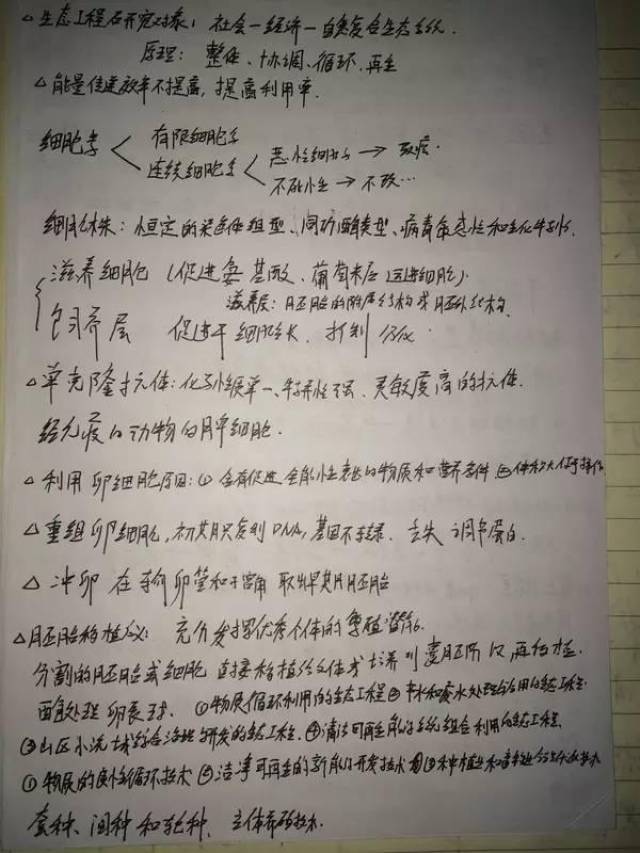 △生态工程研究对象：社会一经济一自然复合生态系统.
原理：整体、协调、循环、再生
△能量传递效率不提高，提高利用率.
细胞系 有限细胞系
连续细胞系 恶性细胞 → 致癌.
不死性 → 不致…
细胞株：恒定的染色体组型、同功酶类型、病毒敏感性和生化特性.
滋养细胞（促进氨基酸、葡萄糖 运进细胞）.
滋养层：胚胎的附属结构或胚外结构.
饲养层 促进干细胞生长、抑制分化.
△单克隆抗体：化学性质单一、特异性强、灵敏度高的抗体.
经免疫的动物的 细胞.
△利用卵细胞原因：①含有促进全能性表达的物质和营养条件 ②体积大便于操作
△重组卵细胞，初期只复制DNA，基因不转录. 丢失 调节蛋白.
△冲卵 在输卵管和子宫角 取出早期胚胎
△胚胎移植意义：充分发挥优秀个体的繁殖潜能.
分割的胚胎或细胞 直接移植给受体或培养到囊胚阶段再移植.
酶处理 卵 ①物质循环利用的生态工程②节水和废水处理与活用的生态工程
③山区小流域综合治理与开发的生态工程. ④清洁可再生能源系统组合利用的生态工程.
①物质的良性循环技术 ②洁净可再生的新能源开发技术 ③种植业和养殖业 技术
套种、间种和轮种、立体养殖技术.